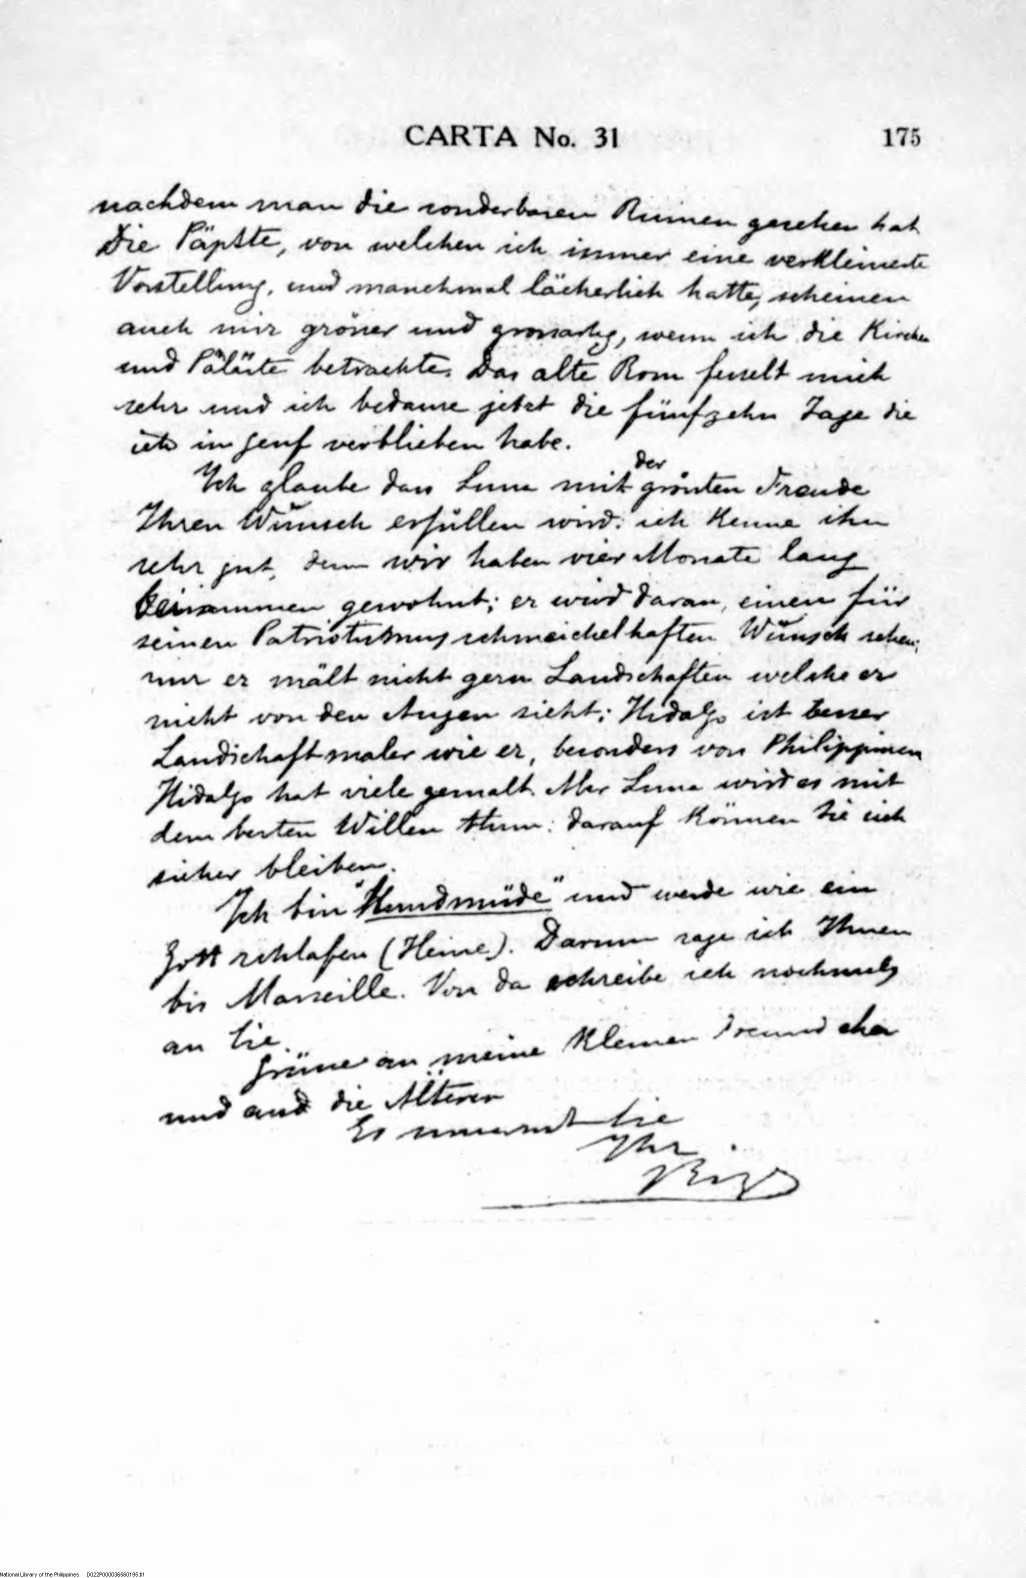 CARTA No. 31 175
nachdem man die sonderbaren Ruinen gesehen hat
Die Päpste, von welchen ich immer eine verkleinerte
Vorstellung, und manchmal lächerlich hatte, scheinen
auch mir grösser und grossartig, wenn ich die Kirchen
und Päläste betrachte. Das alte Rom fesselt mich
sehr und ich bedaure jetzt die fünfzehn Tage die
ich in Genf verblieben habe.
Ich glaube dass Luna mit der grössten Freude
Ihren Wunsch erfüllen wird: ich kenne ihn
sehr gut, denn wir haben vier Monate lang
beisammen gewohnt; er wird daran, einen für
seinen Patriotismus schmeichelhaften Wunsch sehen;
nur er mält nicht gern Landschaften welche er
nicht von den Augen sieht; Hidalgo ist besser
Landschaftmaler wie er, besonders von Philippinen
Hidalgo hat viele gemalt. Aber Luna wird es mit
dem besten Willen thun: darauf können Sie sich
sicher bleiben.
Ich bin "Hundmüde" und werde wie ein
Gott schlafen (Heine). Darum sage ich Ihnen
bis Marseille. Von da schreibe ich nochmals
an Sie.
Grüsse an meine kleinen Freundchen
und and die Älteren
Es umarmt Sie
Ihr
Rizal
National Library of the Philippines